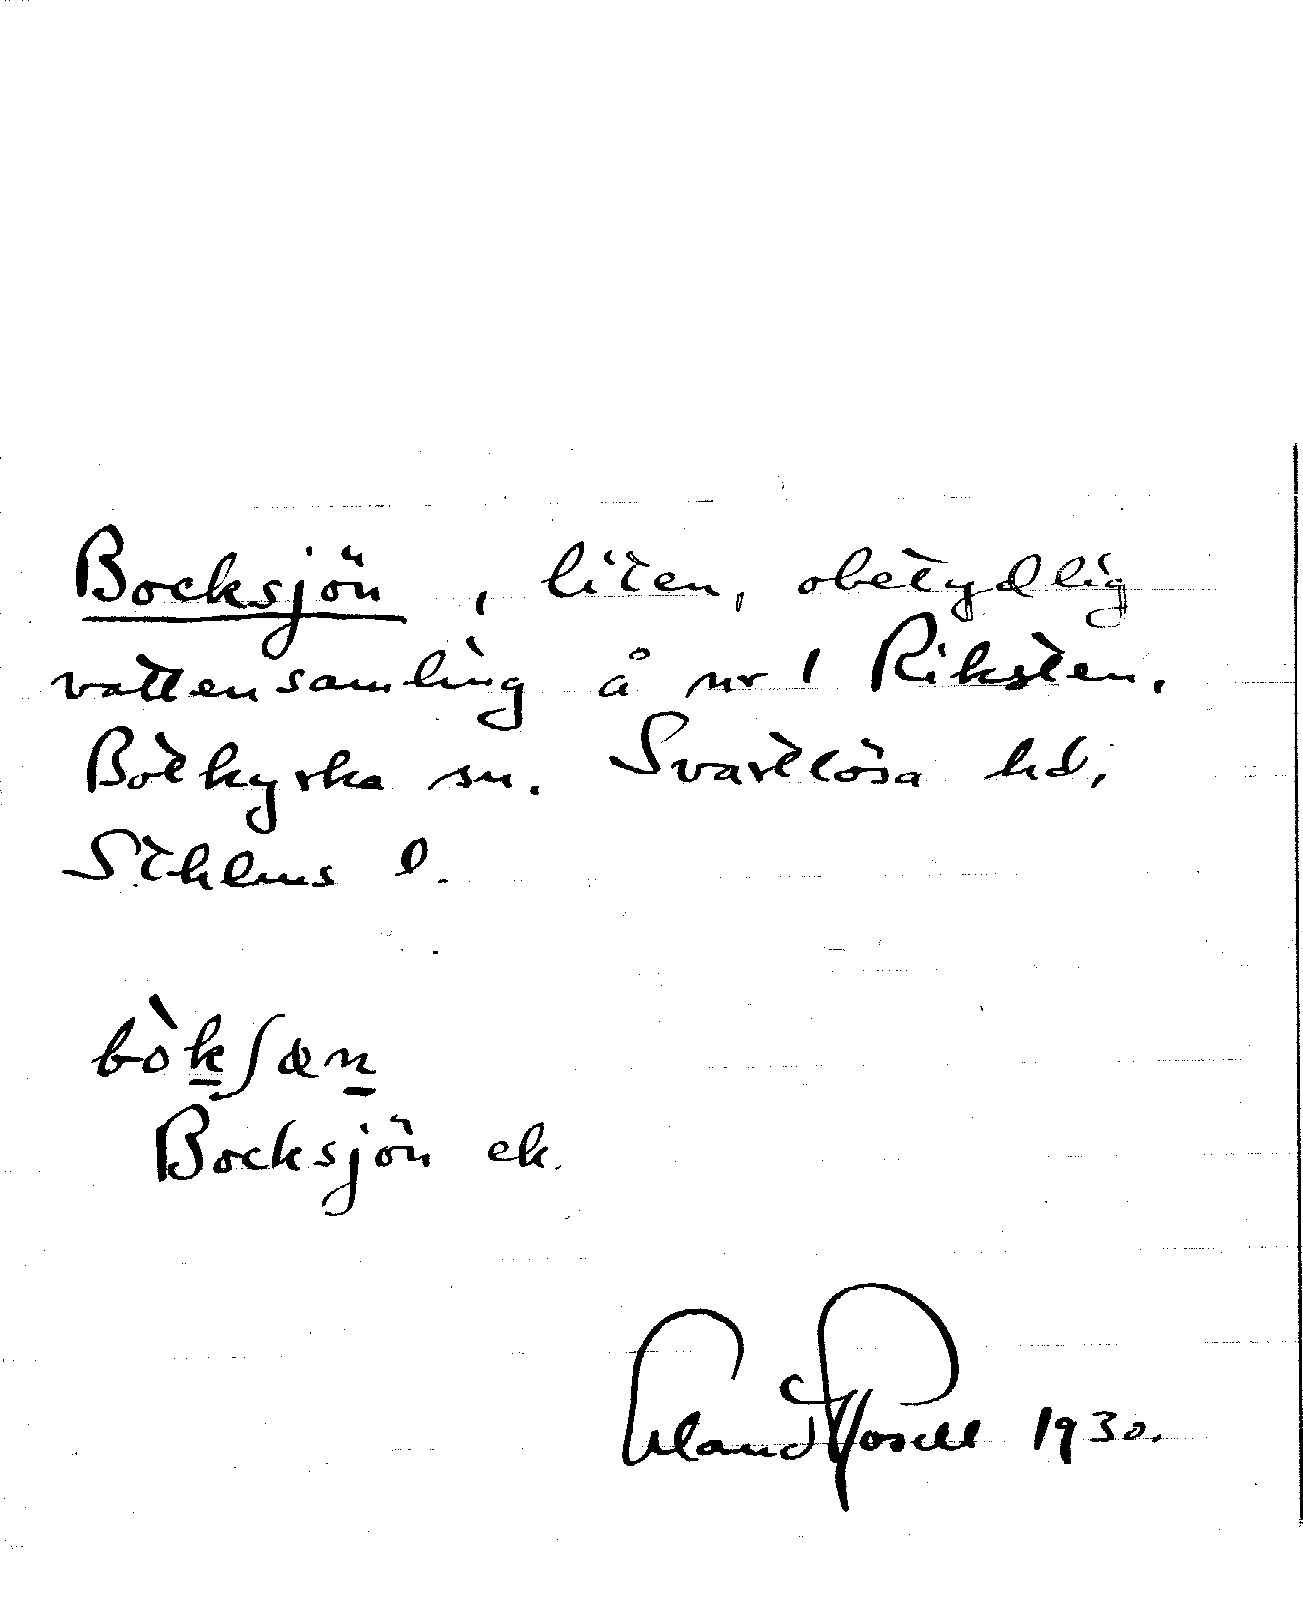 Bocksjön, liten, obetydlig
vattensamling å nr 1 Riksten.
Botkyrka sn. Svartlösa hd,
Sthlms l.
bòkʃæn
Bocksjön ek.
Erland Rosell 1930.